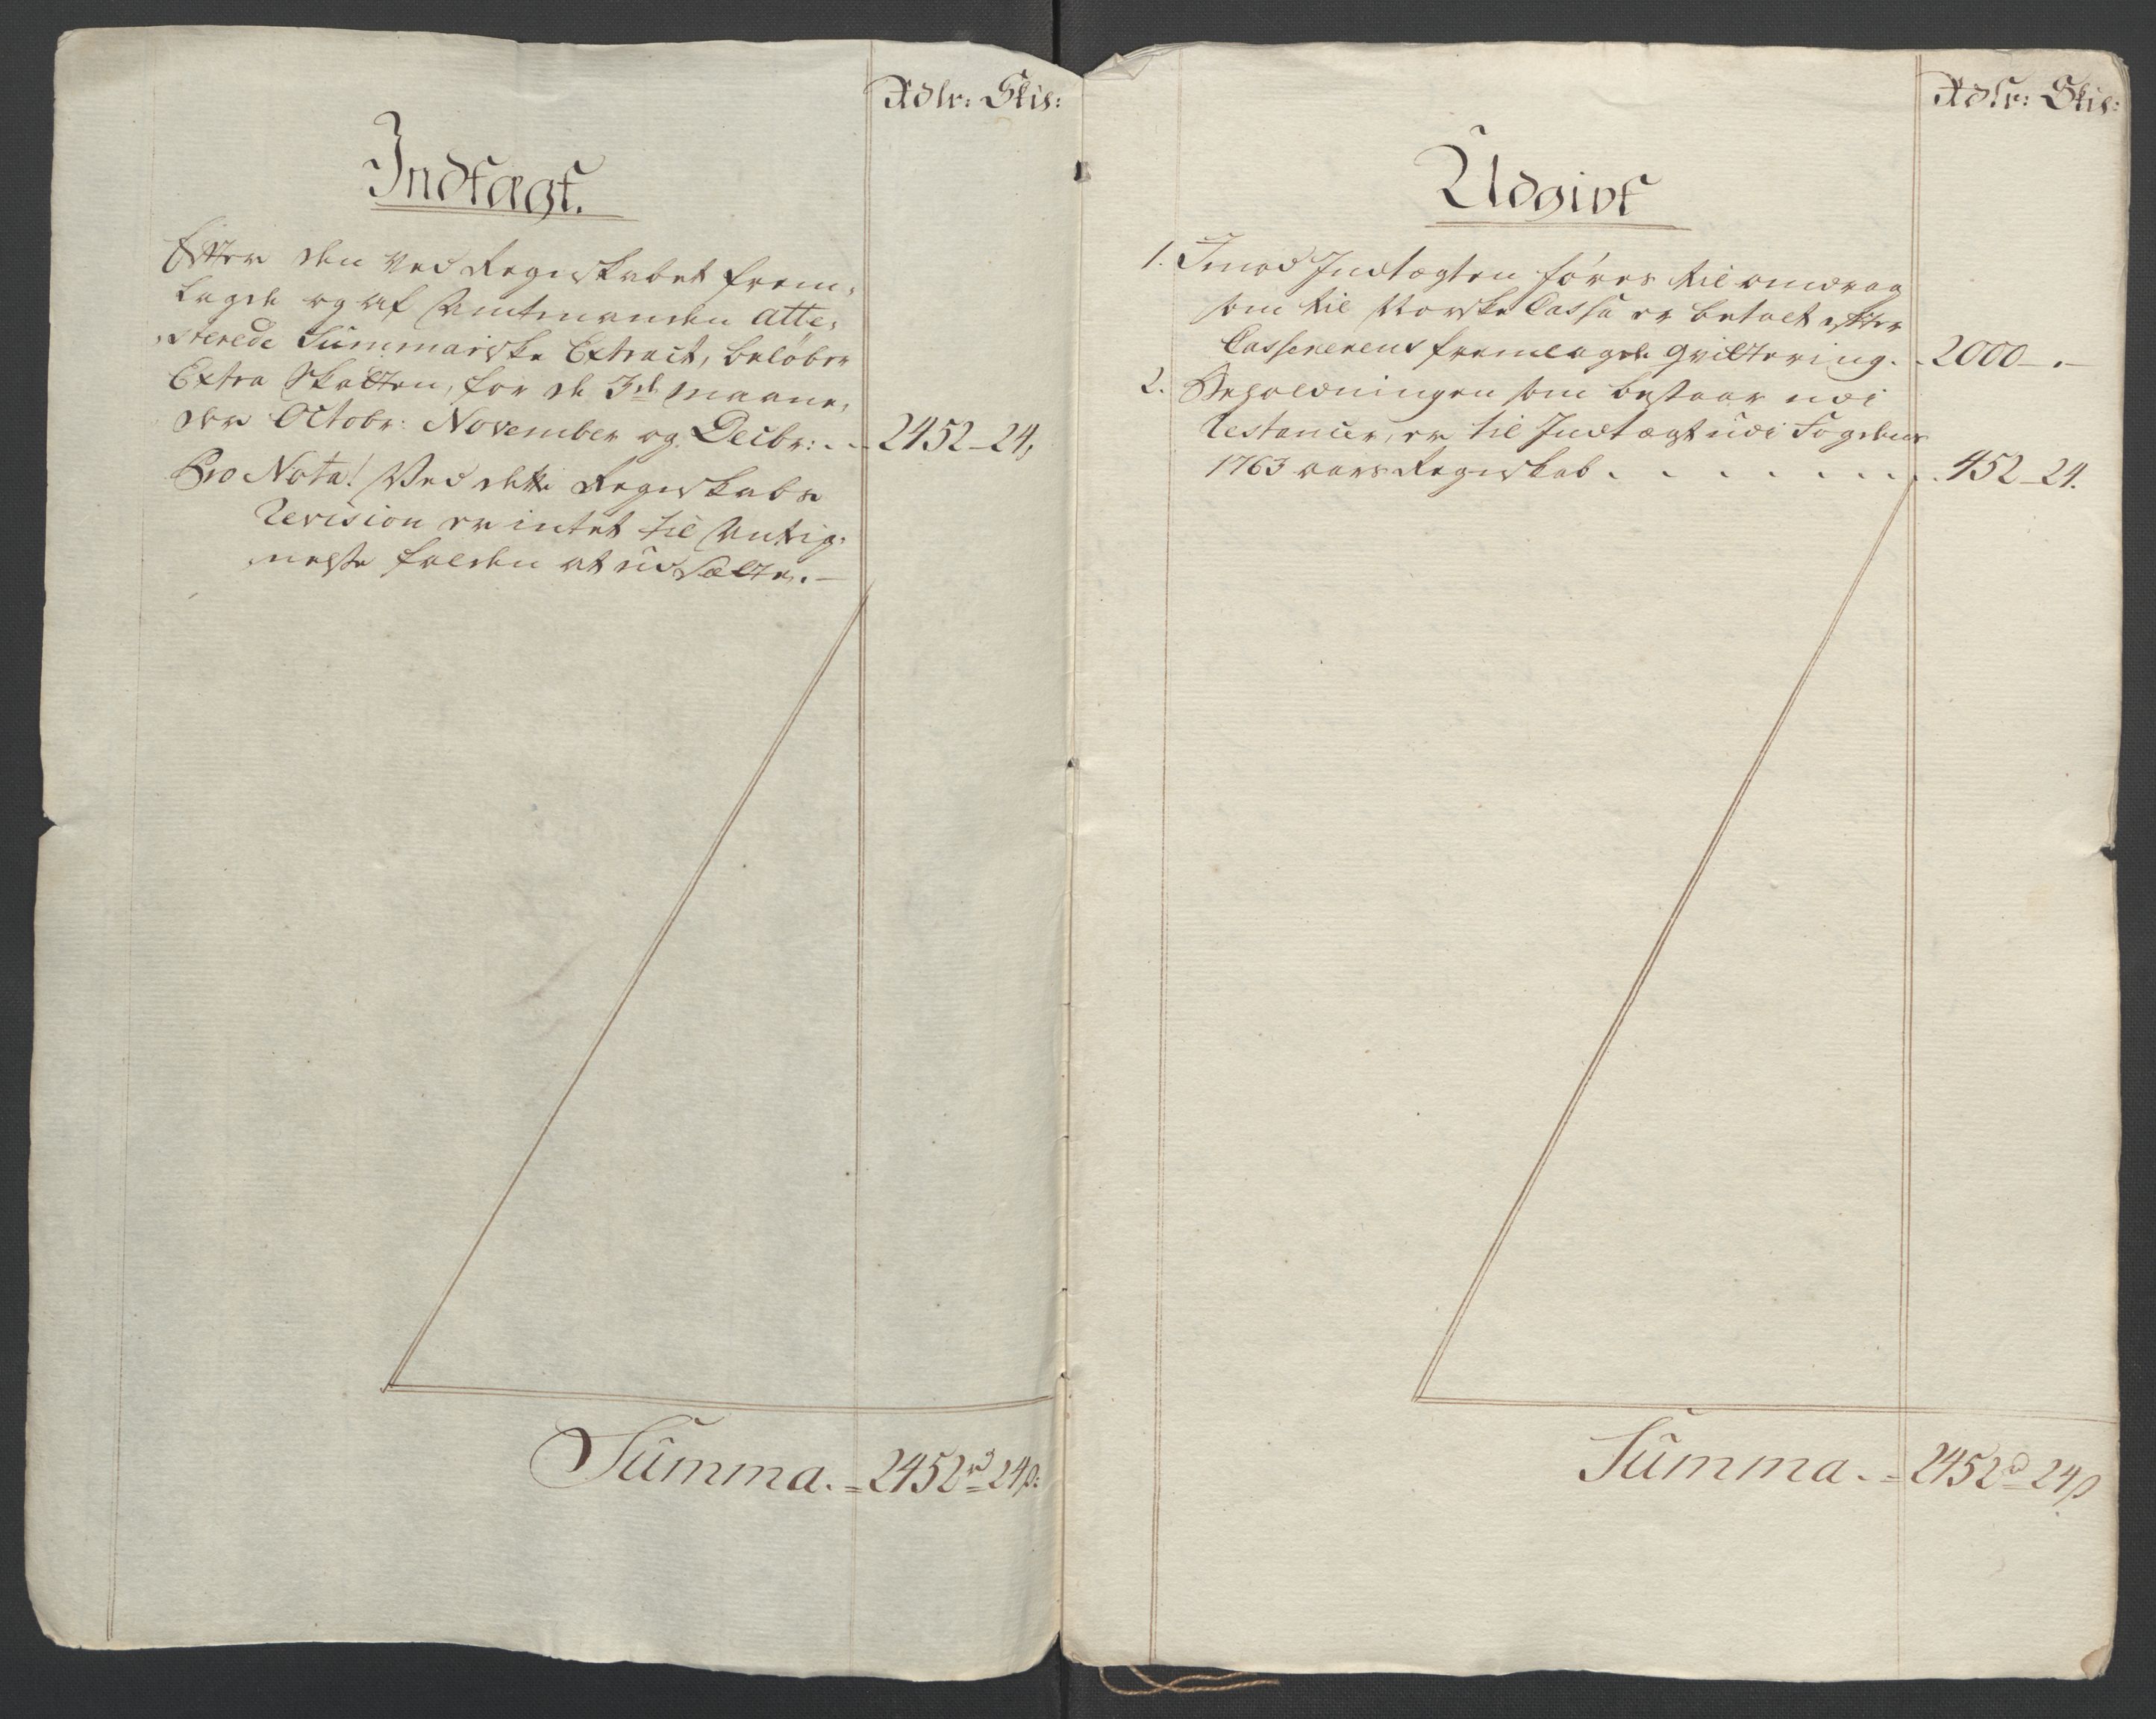 Rdlr: Skil:
Indtægt.
Efter den ved Regnskabet frem,
lagde og af Amtmanden atte,
sterede Summariske Extract, beløber
Extra Skatten, for de 3de maane,
der Octobr: November og Decbr: . . 2452 - 24,
Pro Nota! Ved dette Regnskabs
Revision er intet til Antig,
nelse falden at udsætte. —
Summa. = 2452 rd 24 ß:
Rdlr: Skil:
Udgivt
1. Imod Indtægten føres til omdrag
som til Norske Cassa er betalt efter
Cassererens fremlagde qvittering. . 2000 - . -
2. Beholdningen som bestaar udi
Restancer, er til Indtægt udi Fogdens
1763 aars Regnskab . . . . . . . . 452 - 24.
Summa. = 2452 d 24 ß